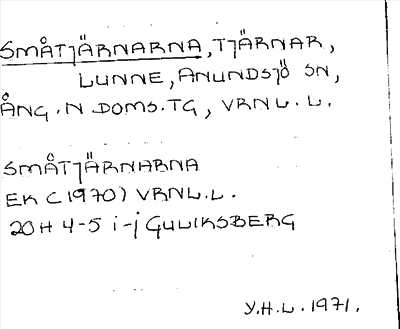 SMÅTJÄRNARNA, TJÄRNAR,
LUNNE, ANUNDSJÖ SN,
ÅNG. N DOMS. TG, VRNL.L.
SMÅTJÄRNARNA
EK (1970) VRNL.L.
20H 4-5 i-j GULIKSBERG
Y.H.L. 1971.